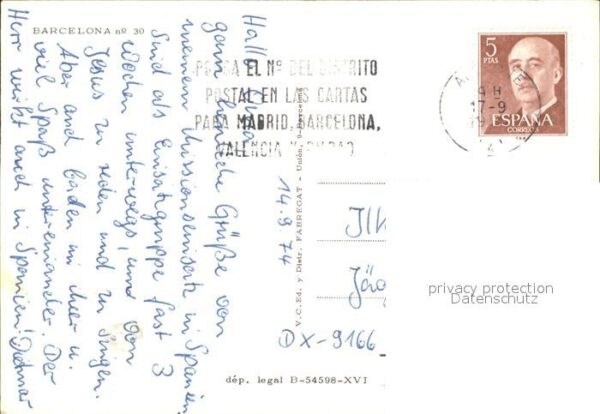 BARCELONA nº 30
Hallo
ganz liebe Grüße von
meinem Missionseinsatz in Spanien
Sind als Einsatzgruppe fast 3
Wochen unterwegs, um von
Jesus zu reden und zu singen.
Aber auch baden im Meer u.
viel Spaß untereinander. Der
Herr wirkt auch in Spanien! Dietmar
PONGA EL Nº DEL DISTRITO
POSTAL EN LAS CARTAS
PARA MADRID, BARCELONA,
VALENCIA Y BILBAO
5
PTAS
ESPAÑA
CORREOS
4H
17-9
V.C.Ed. y Distr. FABREGAT - Unión,
14.9.74
DX-9166
privacy protection
Datenschutz
dép. legal B-54598-XVI